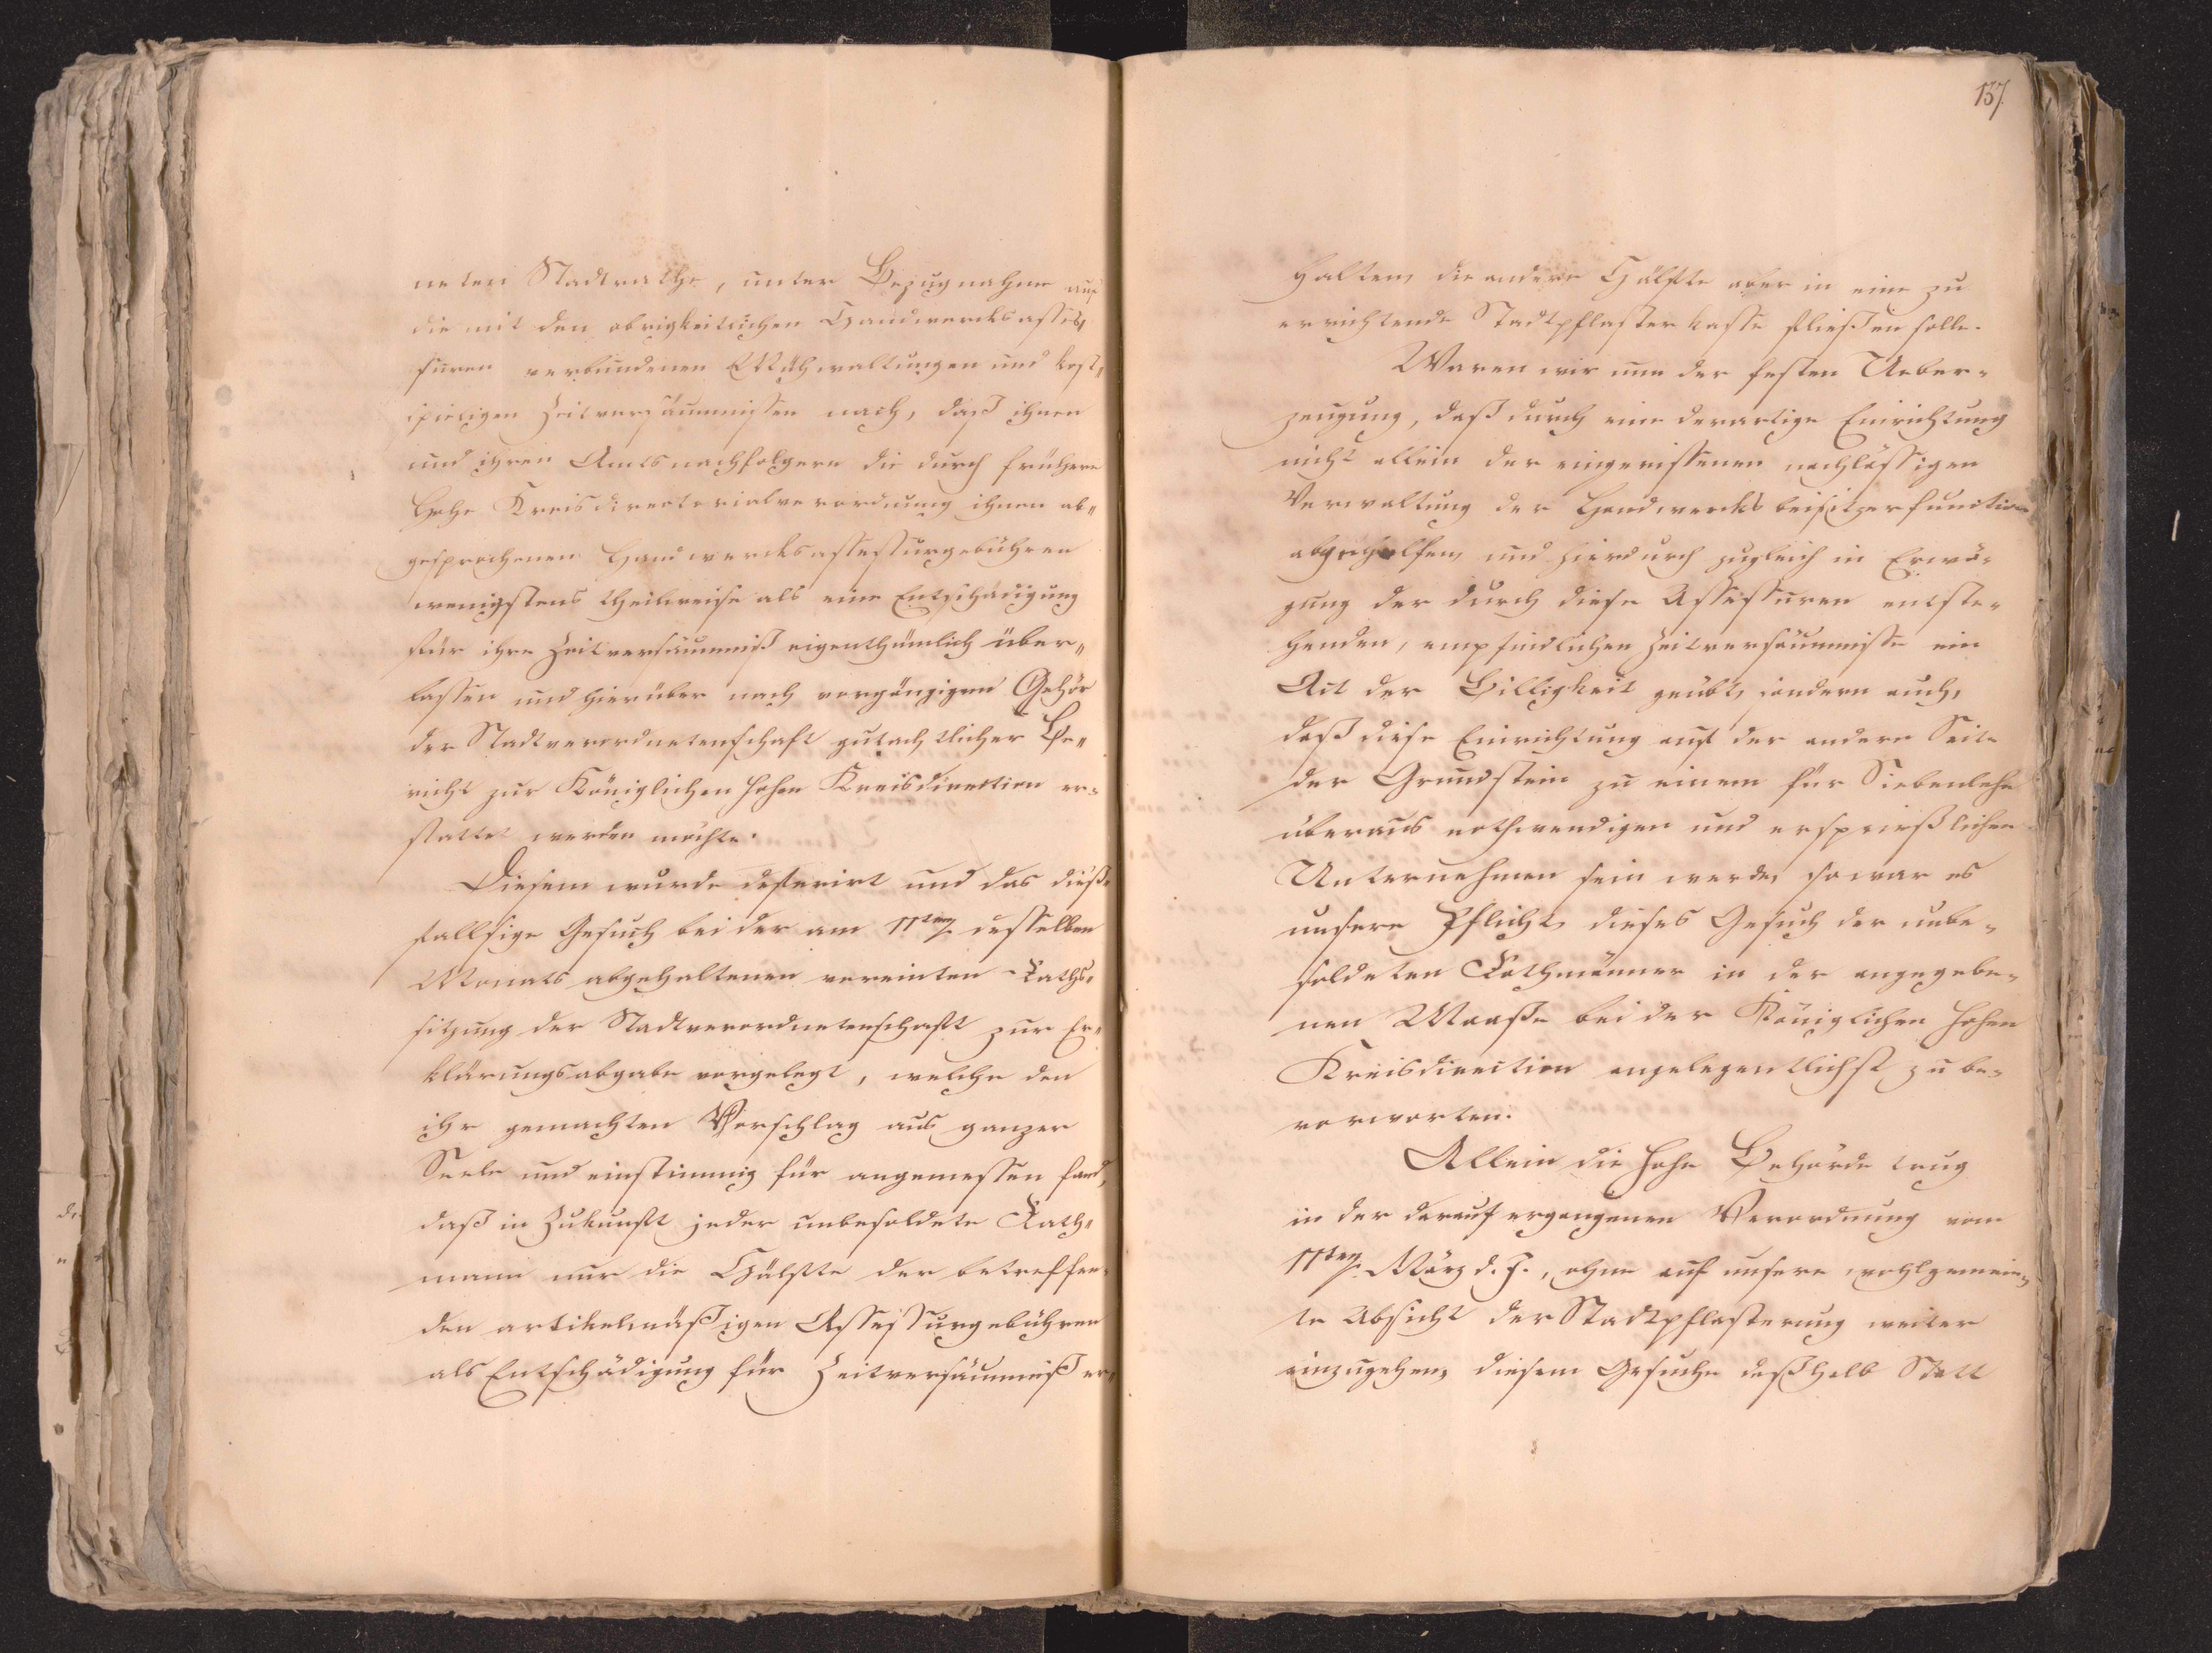 neten Stadtrathe, unter Bezugnahme auf
die mit den obrigkeitlichen Handwerksasses„
suren verbundenen Mühwaltungen und kost„
spieligen Zeitversäumnissen nach, daß ihnen
und ihren Amtsnachfolgern die durch frühere
hohe Kreisdirectorialverordnung ihnen ab„
gesprochenen Handwerksassessurgebühren
wenigstens theilweise als eine Entschädigung
für ihre Zeitversäumniß eigenthümlich über„
lassen und hierüber nach vorgängigem Gehör
der Stadtverordnetenschaft gutachtlicher Be„
richt zur Königlichen hohen Kreisdirection er=
stattet werden möchte.
Diesem wurde deferirt und das dieß=
fallsige Gesuch bei der am 11ten desselben
Monats abgehaltenen vereinten Raths=
sitzung der Stadtverordnetenschaft zur Er„
klärungsabgabe vorgelegt, welche den
ihr gemachten Vorschlag aus ganzer
Seele und einstimmig für angemessen fand,
daß in Zukunft jeder unbesoldete Rath„
mann nur die Hälfte der betreffen=
den artikelmäßigen Assessurgebühren
als Entschädigung für Zeitversäumniß er„
137.
halten, die andere Hälfte aber in eine zu
errichtende Stadtpflasterkasse fließen solle.
Waren wir nun der festen Ueber=
zeugung, daß durch eine derartige Einrichtung
nicht allein der eingerissenen nachlässigen
Verwaltung der Handwerksbeisitzerfunction
abgeholfen, und hierdurch zugleich in Erwä=
gung der durch diese Assessuren entste=
henden, empfindlichen Zeitversäumnisse ein
Act der Billigkeit geübt, sondern auch,
daß diese Einrichtung auf der andern Seite
der Grundstein zu einem für Siebenlehn
überaus nothwendigen und ersprießlichen
Unternehmen sein werde, so war es
unsere Pflicht, dieses Gesuch der unbe=
soldeten Rathmänner in der angegebe=
nen Maaße bei der Königlichen hohen
Kreisdirection angelegentlichst zu be=
vorworten.
Allein die hohe Behörde trug
in der darauf ergangenen Verordnung vom
11ten März d. J., ohne auf unsere wohlgemein=
te Absicht der Stadtpflasterung weiter
einzugehen, diesem Gesuche deßhalb Statt